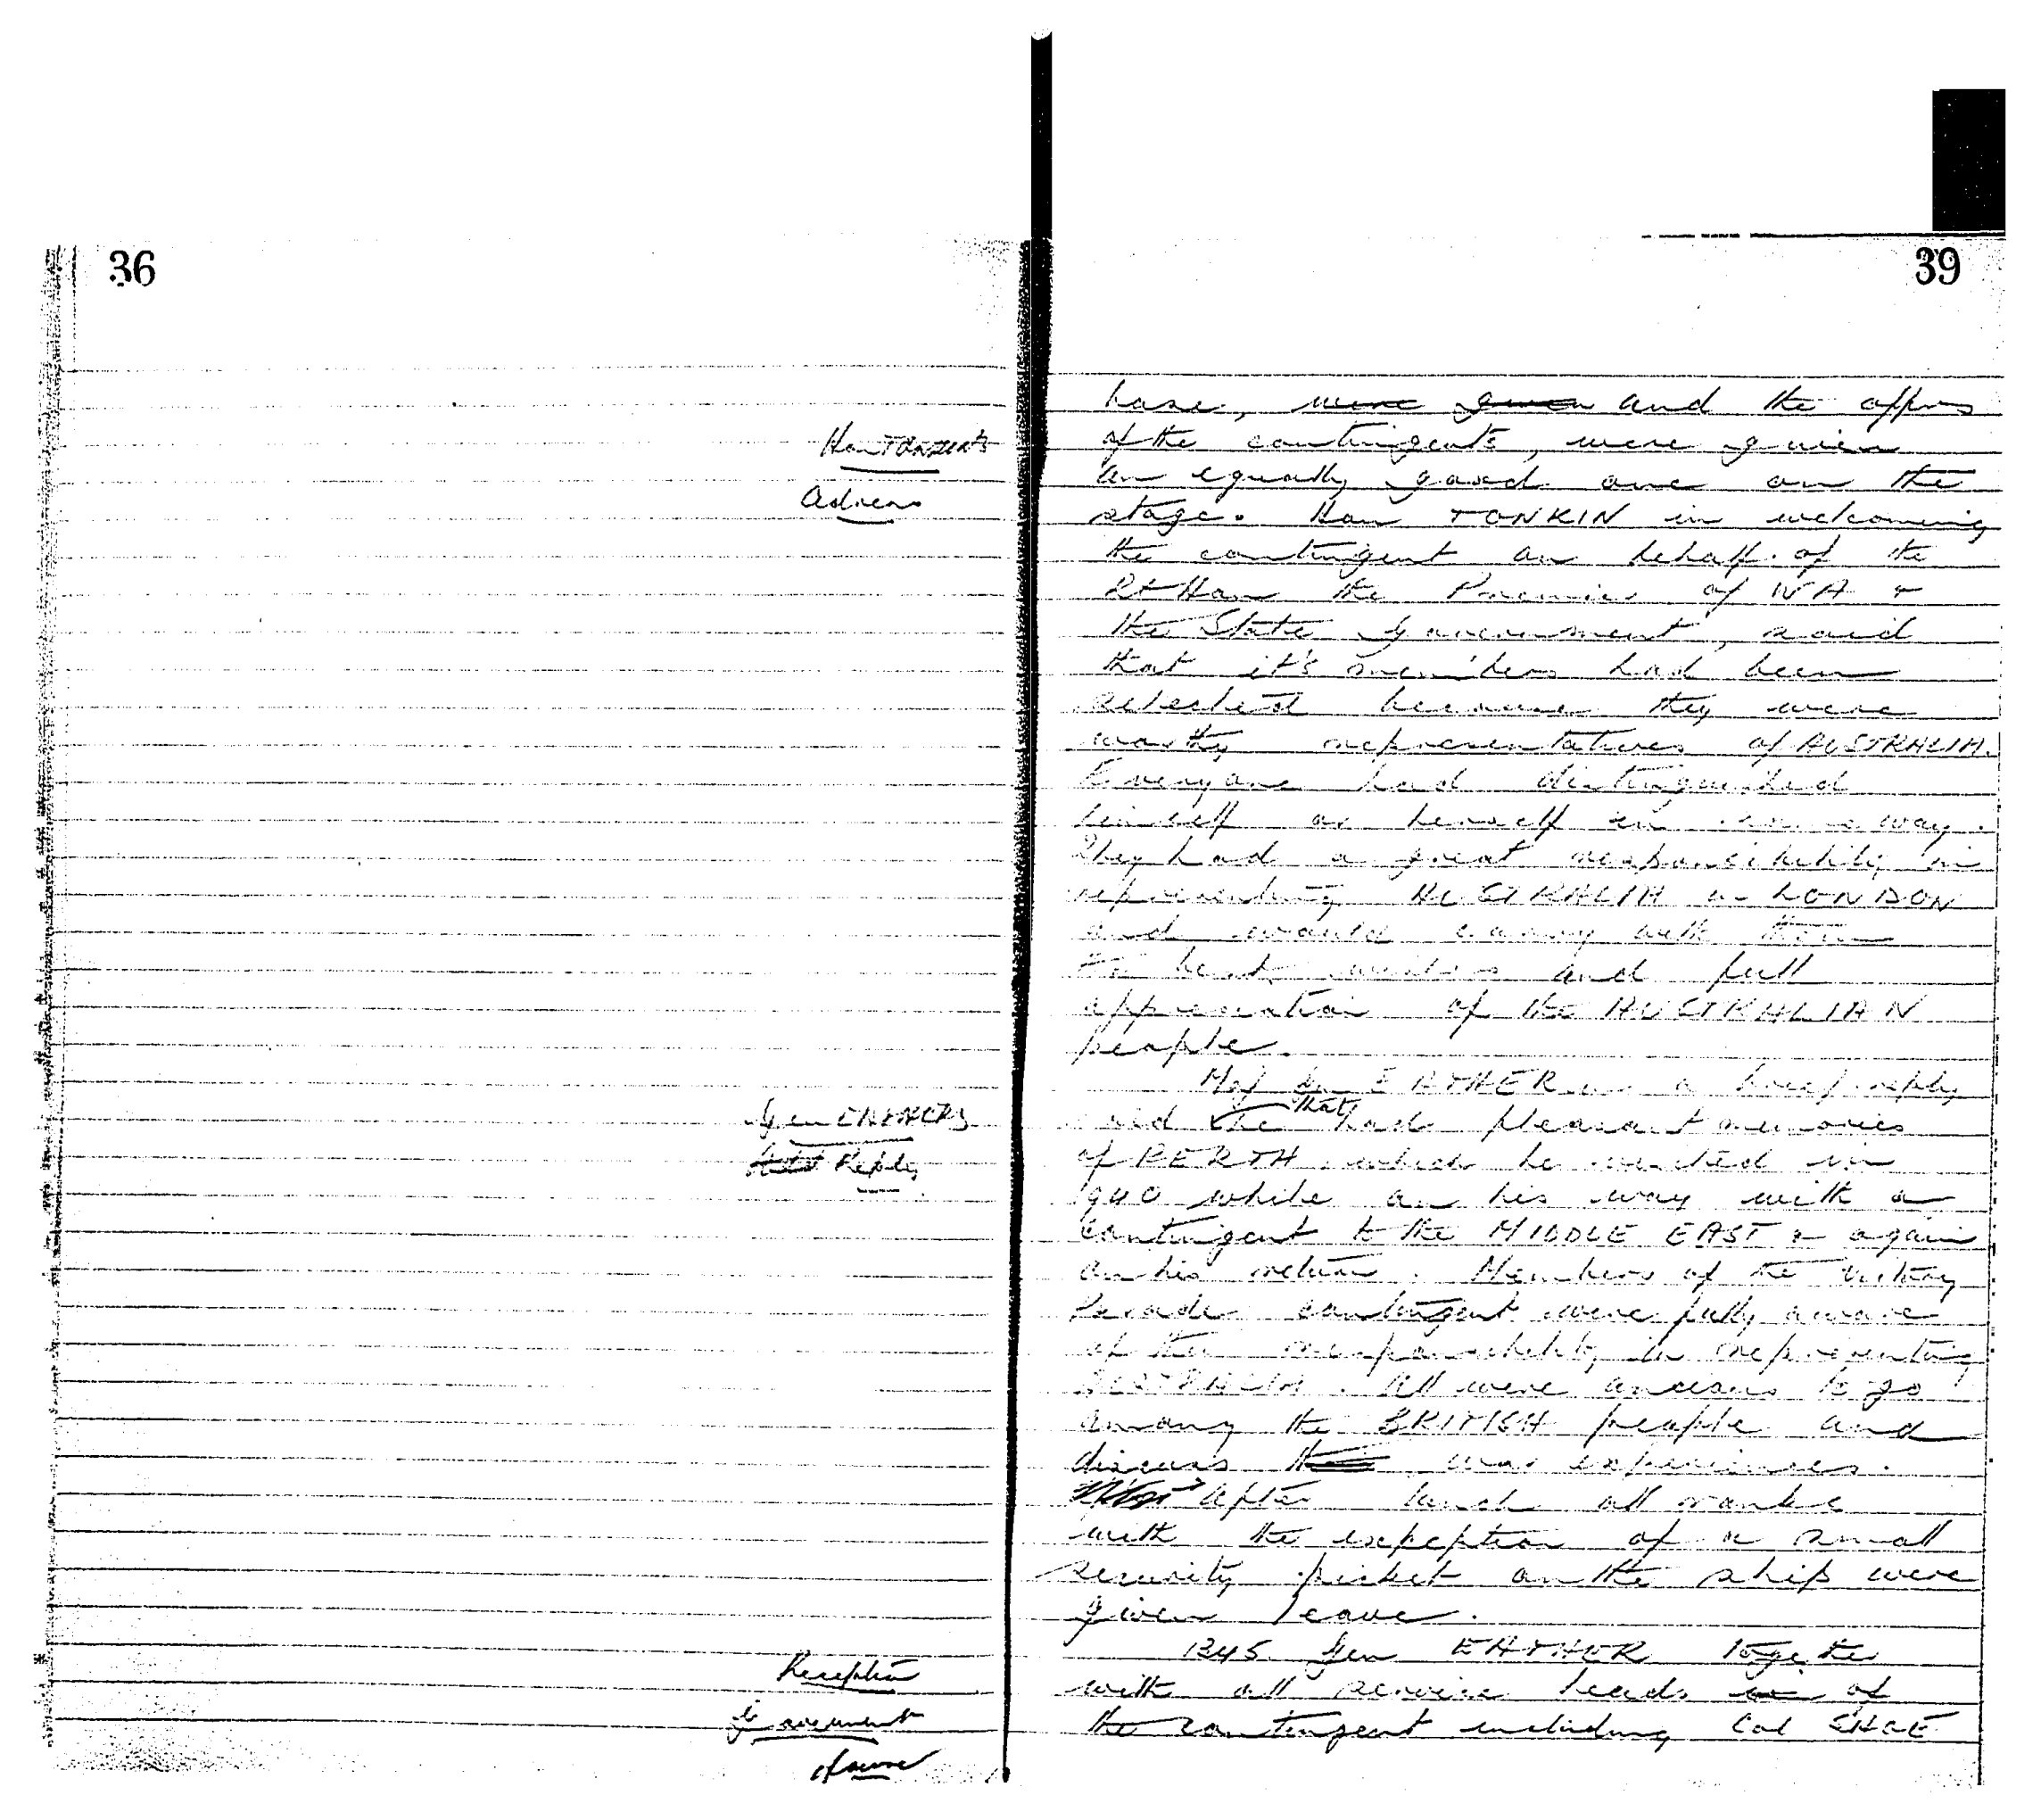 36
Hon TONKIN'S
Address
Gen EATHER'S
Reply
Reception
Government
House
39
base, were given and the offrs
of the contingents, were given
an equally good one on the
stage. Hon TONKIN in welcoming
the contingent on behalf of the
Rt Hon the Premier of WA &
the State Government, said
that it's members had been
selected because they were
worthy representatives of AUSTRALIA.
Everyone had distinguished
himself or herself in some way.
They had a great responsibility in
representing AUSTRALIA in LONDON
and would carry with them
the best wishes and full
appreciation of the AUSTRALIAN
people.
Maj Gen EATHER in a brief reply
said that he had pleasant memories
of PERTH which he visited in
1940 while on his way with a
contingent to the MIDDLE EAST & again
on his return. Members of the Victory
Parade contingent were fully aware
of their responsibility in representing
AUSTRALIA. All were anxious to go
among the BRITISH people and
discuss the war experiences.
After lunch all ranks
with the expeption of a small
security picket on the ship were
given leave.
1345 Gen EATHER together
with all service heads of
the contingent including Col SHOE